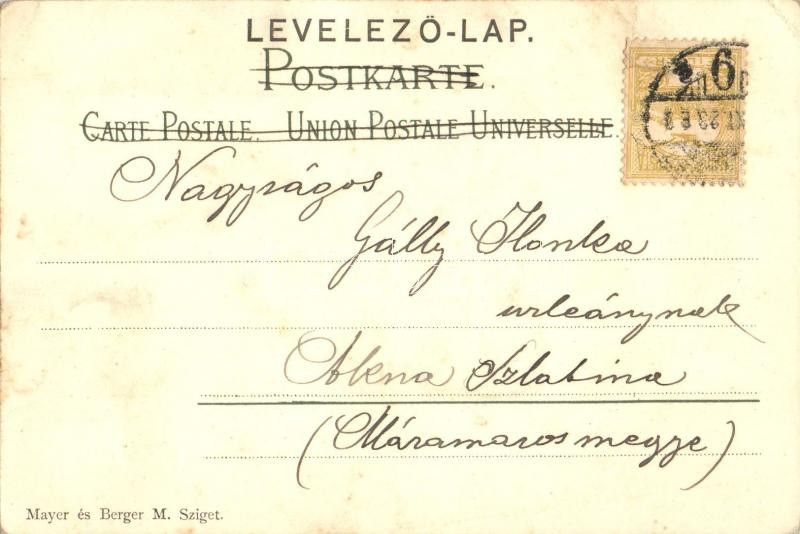 LEVELEZŐ-LAP.
POSTKARTE.
CARTE POSTALE. UNION POSTALE UNIVERSELLE.
Nagyságos
Gálly Ilonka
urleánynak
Akna Szlatina
(Máramaros megye)
Mayer és Berger M. Sziget.